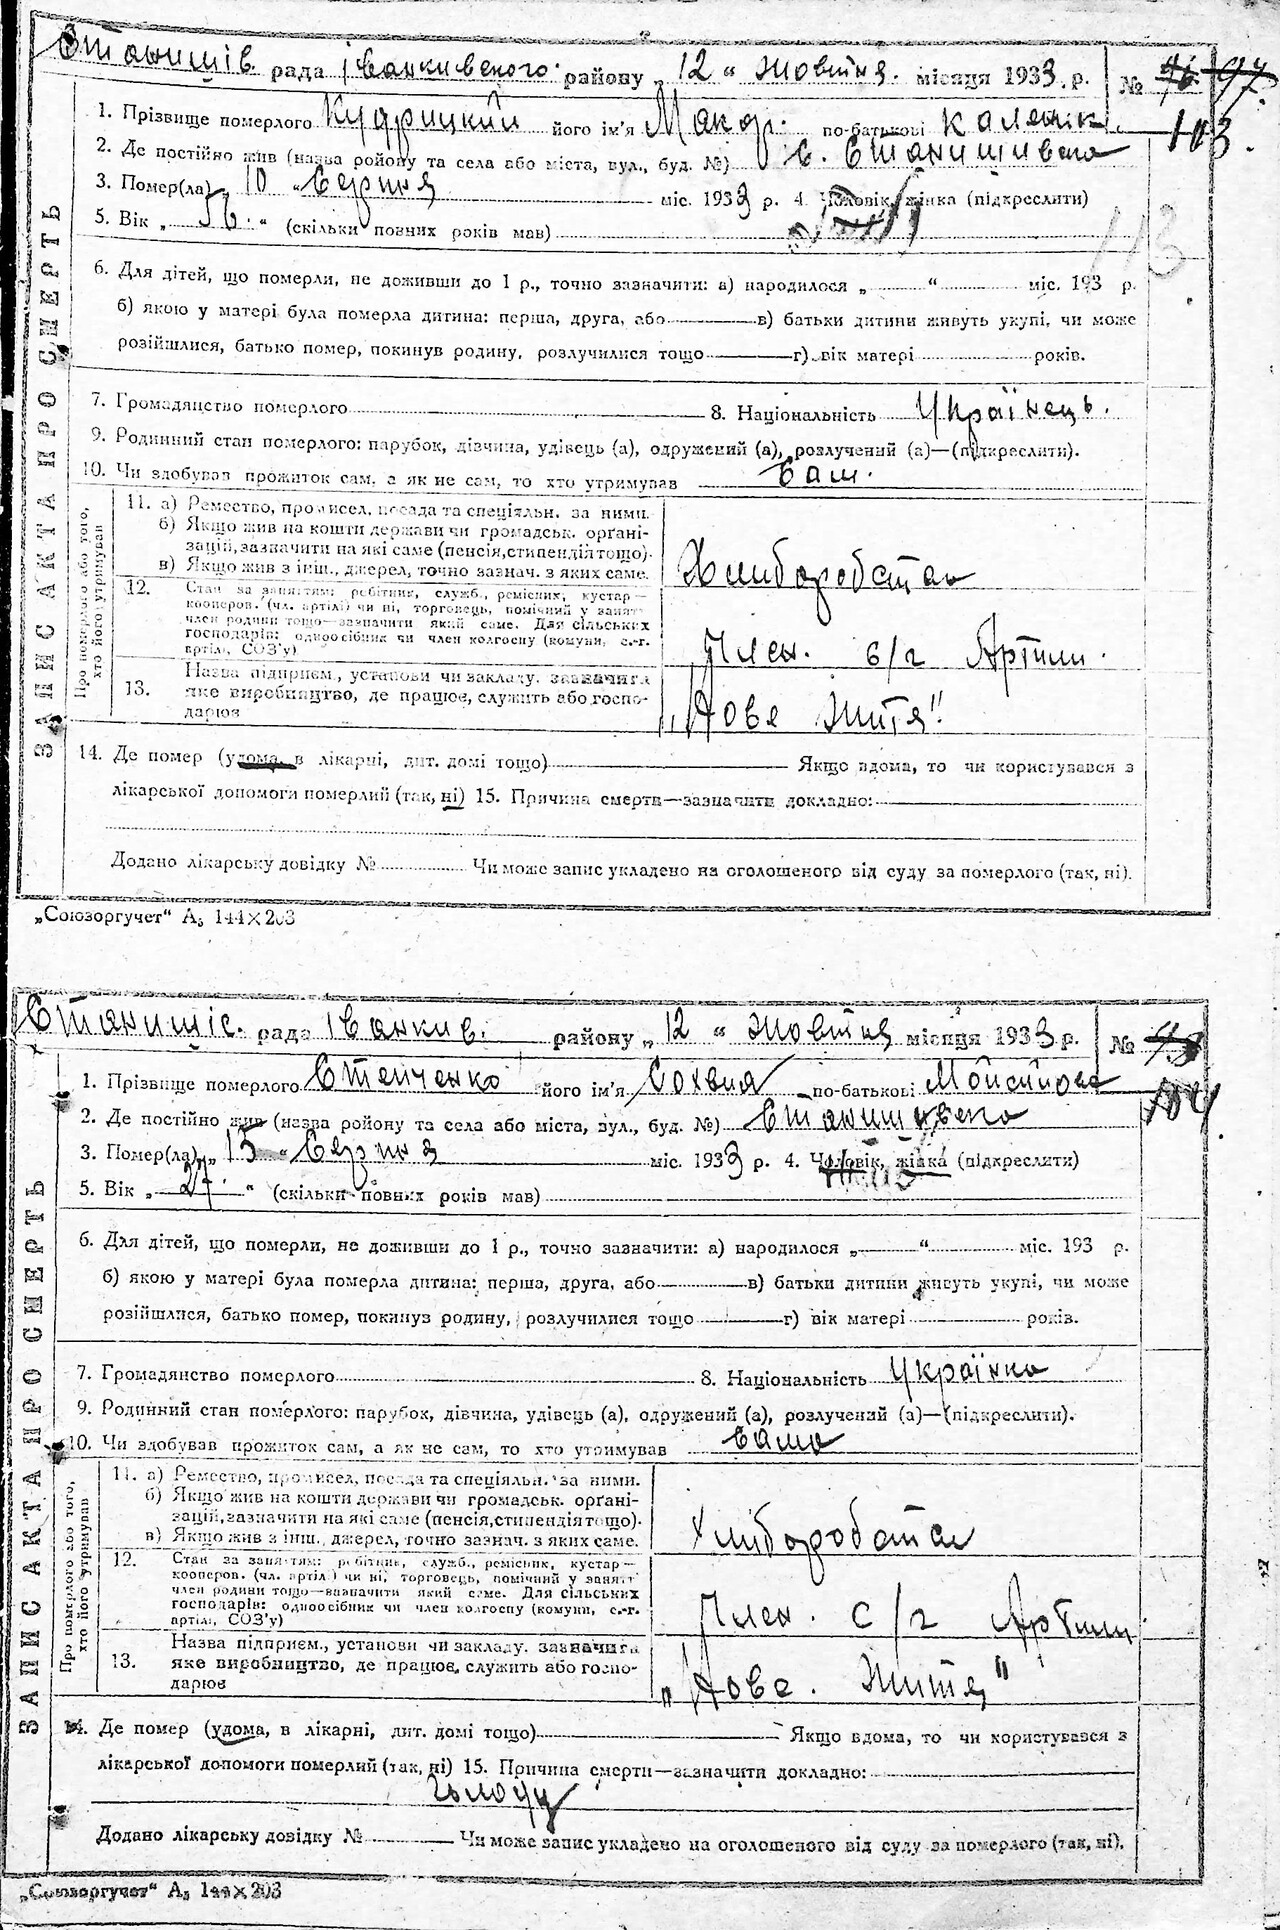 Станишів. рада Іванкивского району „12“ Жовтня. місяця 1933. р. № 97.
103.
1. Прізвище померлого Кудрицкий його ім'я Макар. по-батькові Каленик.
2. Де постійно жив (назва ройону та села або міста, вул., буд. №) С. Станишивка
3. Помер(ла) „10“ Серпня міс. 1933 р. 4. Чоловік, жінка (підкреслити)
5. Вік „56.“ (скільки повних років мав)
113
6. Для дітей, що померли, не доживши до 1 р., точно зазначити: а) народилося „ “ міс. 193 р.
б) якою у матері була померла дитина: перша, друга, або в) батьки дитини живуть укупі, чи може
розійшлися, батько помер, покинув родину, розлучилися тощо г) вік матері років.
7. Громадянство померлого 8. Національність Українець.
9. Родинний стан померлого: парубок, дівчина, удівець (а), одружений (а), розлучений (а)—(підкреслити).
10. Чи здобував прожиток сам, а як не сам, то хто утримував Сам.
ЗАПИС АКТА ПРО СМЕРТЬ
Про померлого або того, хто його утримував
11. а) Ремество, промисел, посада та спеціяльн. за ними.
б) Якщо жив на кошти держави чи громадськ. орґані-
зацій, зазначити на які саме (пенсія, стипендія тощо).
в) Якщо жив з інш., джерел, точно зазнач. з яких саме.
Хлиборобство
12. Стан за заняттям: робітник, служб., ремісник, кустар—
кооперов. (чл. артілі) чи ні, торговець, помічний у занятт
член родини тощо—зазначити який саме. Для сільських
господарів: одноосібник чи член колгоспу (комуни, с.-г.
артілі, СОЗ'у)
Член. с/г Артили.
13. Назва підприєм., установи чи закладу, зазначига
яке виробництво, де працює, служить або госпо-
дарює
„Нове Життя“
14. Де помер (удома, в лікарні, дит. домі тощо) Якщо вдома, то чи користувався з
лікарської допомоги померлий (так, ні) 15. Причина смерти—зазначити докладно:
Додано лікарську довідку № Чи може запис укладено на оголошеного від суду за померлого (так, ні).
„Союзоргучет“ А₅ 144×203
Станишіс. рада Іванкив. району „12“ Жовтня місяця 1933 р. №
104
1. Прізвище померлого Степченко його ім'я Сохвия по-батькові Мойсиївна
2. Де постійно жив (назва ройону та села або міста, вул., буд. №) Станишивка
3. Помер(ла) „15“ Серпня міс. 1933 р. 4. Чоловік, жінка (підкреслити)
5. Вік „27.“ (скільки повних років мав)
6. Для дітей, що померли, не доживши до 1 р., точно зазначити: а) народилося „ “ міс. 193 р.
б) якою у матері була померла дитина: перша, друга, або в) батьки дитини живуть укупі, чи може
розійшлися, батько помер, покинув родину, розлучилися тощо г) вік матері років.
7. Громадянство померлого 8. Національність Українка
9. Родинний стан померлого: парубок, дівчина, удівець (а), одружений (а), розлучений (а)—(підкреслити).
10. Чи здобував прожиток сам, а як не сам, то хто утримував Сама
ЗАПИС АКТА ПРО СМЕРТЬ
Про померлого або того, хто його утримував
11. а) Ремество, промисел, посада та спеціяльн. за ними.
б) Якщо жив на кошти держави чи громадськ. орґані-
зацій, зазначити на які саме (пенсія, стипендія тощо).
в) Якщо жив з інш., джерел, точно зазнач. з яких саме.
Хлиборобство
12. Стан за заняттям: робітник, служб., ремісник, кустар—
кооперов. (чл. артілі) чи ні, торговець, помічний у занятт
член родини тощо—зазначити який саме. Для сільських
господарів: одноосібник чи член колгоспу (комуни, с.-г.
артілі, СОЗ'у)
Член. с/г Артили
13. Назва підприєм., установи чи закладу, зазначига
яке виробництво, де працює, служить або госпо-
дарює
„Нове. Життя“
14. Де помер (удома, в лікарні, дит. домі тощо) Якщо вдома, то чи користувався з
лікарської допомоги померлий (так, ні) 15. Причина смерти—зазначити докладно:
Голоду
Додано лікарську довідку № Чи може запис укладено на оголошеного від суду за померлого (так, ні).
„Союзоргучет“ А₅ 144×203